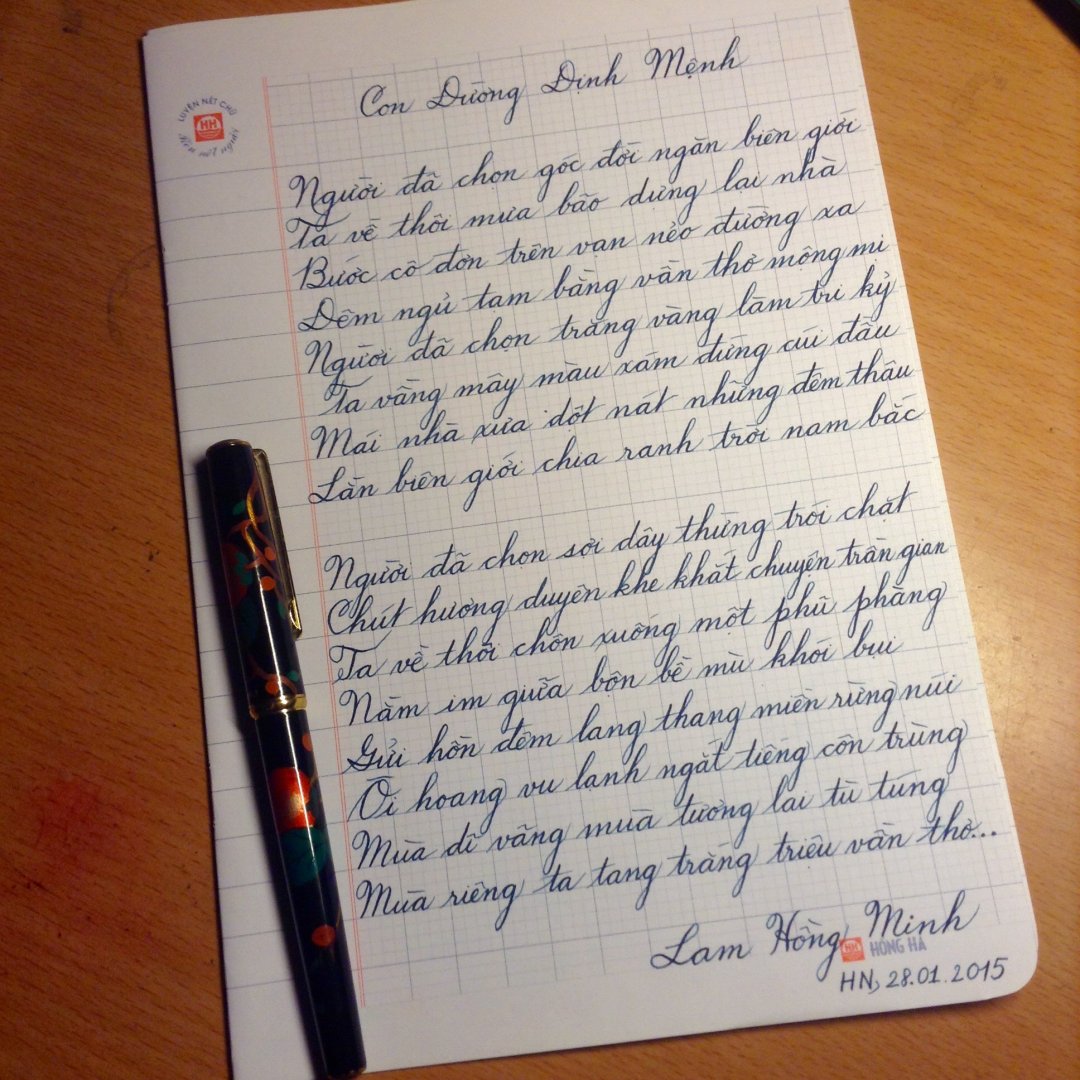 LUYỆN NÉT CHỮ
HH
Rèn nết người
Con Đường Định Mệnh
Người đã chọn góc đời ngăn biên giới
Ta về thôi mưa bão dừng lại nhà
Bước cô đơn trên vạn nẻo đường xa
Đêm ngủ tạm bằng vần thơ mộng mị
Người đã chọn trăng vàng làm tri kỷ
Ta vầng mây màu xám đứng cúi đầu
Mái nhà xưa dột nát những đêm thâu
Lằn biên giới chia ranh trời nam bắc
Người đã chọn sợi dây thừng trói chặt
Chút hương duyên khe khắt chuyện trần gian
Ta về thôi chôn xuống một phũ phàng
Nằm im giữa bộn bề mù khói bụi
Gửi hồn đêm lang thang miền rừng núi
Ôi hoang vu lạnh ngắt tiếng côn trùng
Mùa dĩ vãng mùa tương lai tù túng
Mùa riêng ta tang trắng triệu vần thơ...
Lam Hồng Minh
HH HỒNG HÀ
HN, 28.01.2015